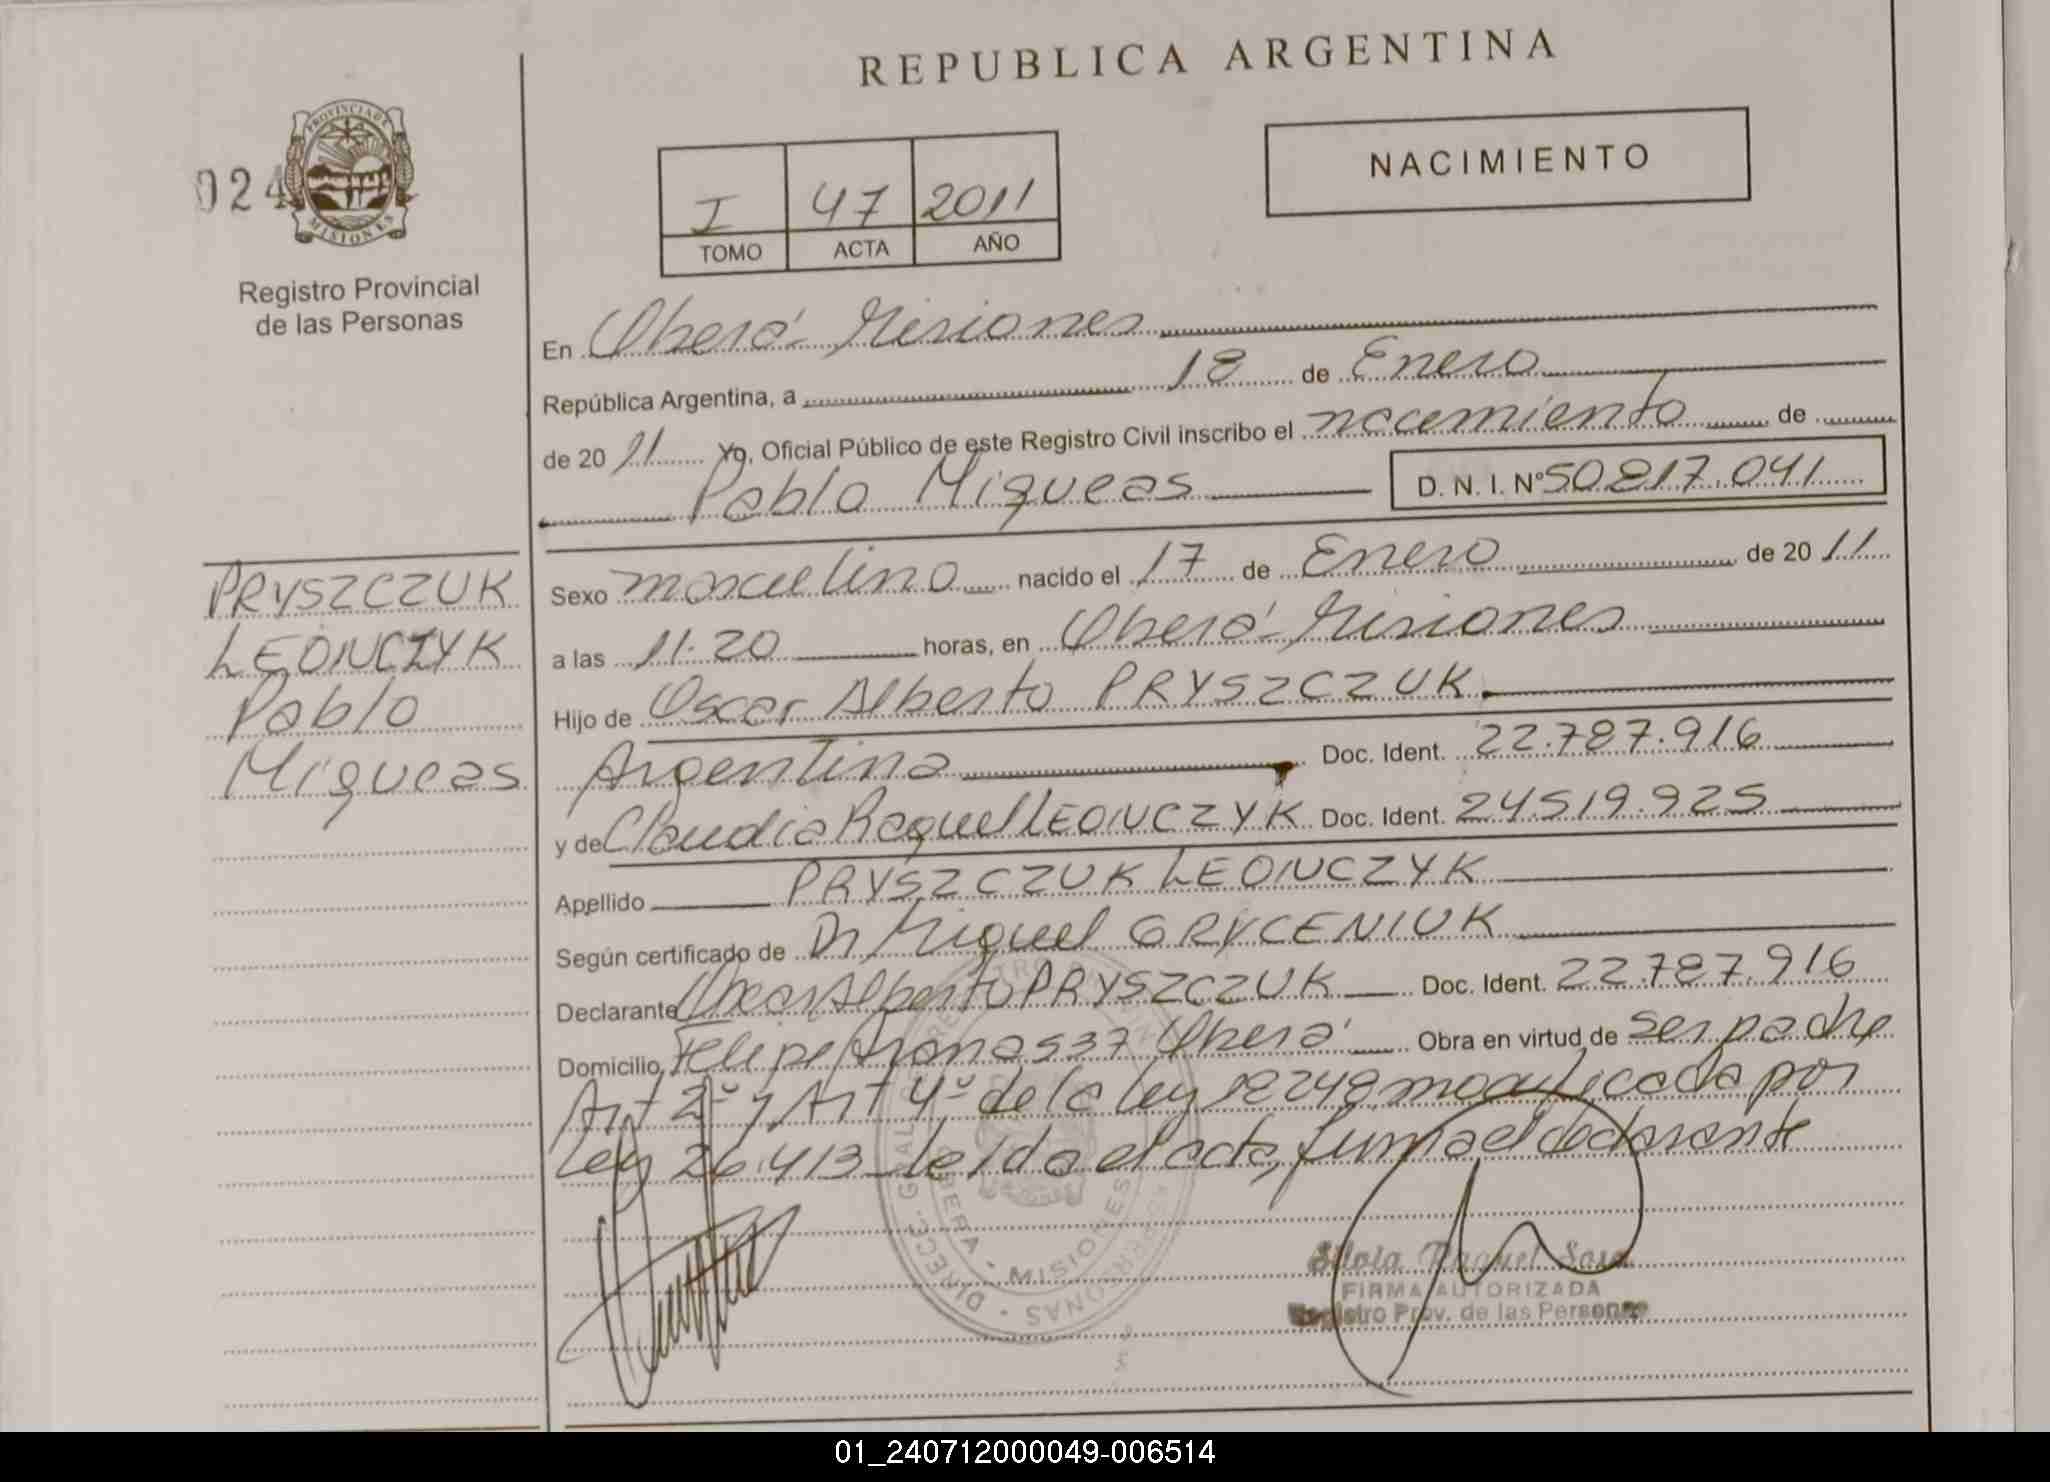 REPUBLICA ARGENTINA
NACIMIENTO
024
PROVINCIA DE
MISIONES
Registro Provincial
de las Personas
I 47 2011
TOMO ACTA AÑO
En Oberá Misiones
República Argentina, a 18 de Enero
de 2011 Yo, Oficial Público de este Registro Civil inscribo el nacimiento de
Pablo Miqueas D. N. I. Nº 50.817.041
PRYSZCZUK
LEONCZYK
Pablo
Miqueas
Sexo masculino nacido el 17 de Enero de 2011
a las 11.20 horas, en Oberá Misiones
Hijo de Oscar Alberto PRYSZCZUK
Argentina Doc. Ident. 22.787.916
y de Claudia Raquel LEONCZYK Doc. Ident. 24.519.925
Apellido PRYSZCZUK LEONCZYK
Según certificado de Dr Miguel GRYCENIUK
Declarante Oscar Alberto PRYSZCZUK Doc. Ident. 22.787.916
Domicilio Felipe Aranas 537 Oberá Obra en virtud de ser padre
Art 2º y Art 4º de la Ley 18248 modificada por
Ley 26.413 leída el acta, firma el declarante
OBERA • MISIONES
Silvia Raquel Sosa
FIRMA AUTORIZADA
Registro Prov. de las Personas
01_240712000049-006514